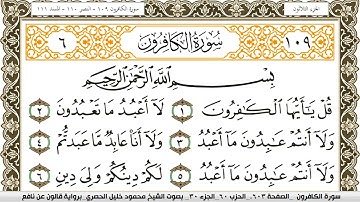 الجزء الثلاثون
سورة الكافرون ١٠٩ - النصر ١١٠ - المسد ١١١
١٠٩ سُورَةُ الكَافِرُونَ ٦
بِسْمِ اللَّهِ الرَّحْمَٰنِ الرَّحِيمِ
قُلْ يَٰٓأَيُّهَا ٱلْكَٰفِرُونَ ١ لَآ أَعْبُدُ مَا تَعْبُدُونَ ٢
وَلَآ أَنتُمْ عَٰبِدُونَ مَآ أَعْبُدُ ٣ وَلَآ أَنَا۠ عَابِدٞ مَّا عَبَدتُّمْ ٤
وَلَآ أَنتُمْ عَٰبِدُونَ مَآ أَعْبُدُ ٥ لَكُمْ دِينُكُمْ وَلِيَ دِينِ ٦
سورة الكافرون _ الصفحة ٦٠٣_ الحزب ٦٠_ الجزء ٣٠_ بصوت الشيخ محمود خليل الحصري_ برواية قالون عن نافع